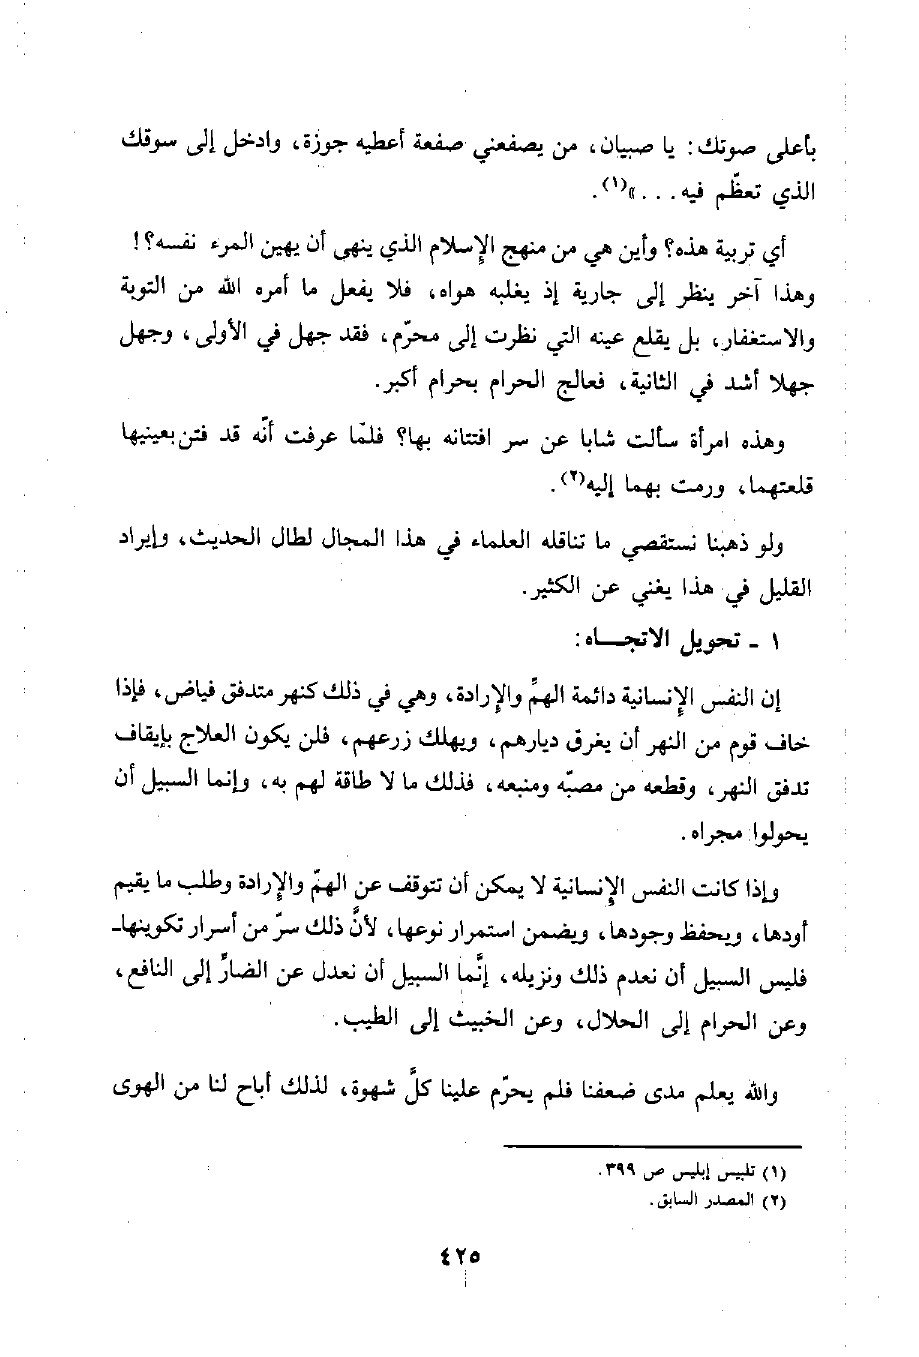 بأعلى صوتك: يا صبيان، من يصفعني صفعة أعطيه جوزة، وادخل إلى سوقك
الذي تعظّم فيه. . .»(١).
أي تربية هذه؟ وأين هي من منهج الإسلام الذي ينهى أن يهين المرء نفسه؟!
وهذا آخر ينظر إلى جارية إذ يغلبه هواه، فلا يفعل ما أمره الله من التوبة
والاستغفار، بل يقلع عينه التي نظرت إلى محرّم، فقد جهل في الأولى، وجهل
جهلا أشد في الثانية، فعالج الحرام بحرام أكبر.
وهذه امرأة سألت شابا عن سر افتتانه بها؟ فلمّا عرفت أنّه قد فتن بعينيها
قلعتهما، ورمت بهما إليه(٢).
ولو ذهبنا نستقصي ما تناقله العلماء في هذا المجال لطال الحديث، وإيراد
القليل في هذا يغني عن الكثير.
١ - تحويل الاتجـــاه:
إن النفس الإنسانية دائمة الهمِّ والإرادة، وهي في ذلك كنهر متدفق فياض، فإذا
خاف قوم من النهر أن يغرق ديارهم، ويهلك زرعهم، فلن يكون العلاج بإيقاف
تدفق النهر، وقطعه من مصبّه ومنبعه، فذلك ما لا طاقة لهم به، وإنما السبيل أن
يحولوا مجراه.
وإذا كانت النفس الإنسانية لا يمكن أن تتوقف عن الهمّ والإرادة وطلب ما يقيم
أودها، ويحفظ وجودها، ويضمن استمرار نوعها، لأنَّ ذلك سرّ من أسرار تكوينهاـ
فليس السبيل أن نعدم ذلك ونزيله، إنَّما السبيل أن نعدل عن الضارِّ إلى النافع،
وعن الحرام إلى الحلال، وعن الخبيث إلى الطيب.
والله يعلم مدى ضعفنا فلم يحرّم علينا كلَّ شهوة، لذلك أباح لنا من الهوى
(١) تلبيس إبليس ص ٣٩٩.
(٢) المصدر السابق.
٤٢٥